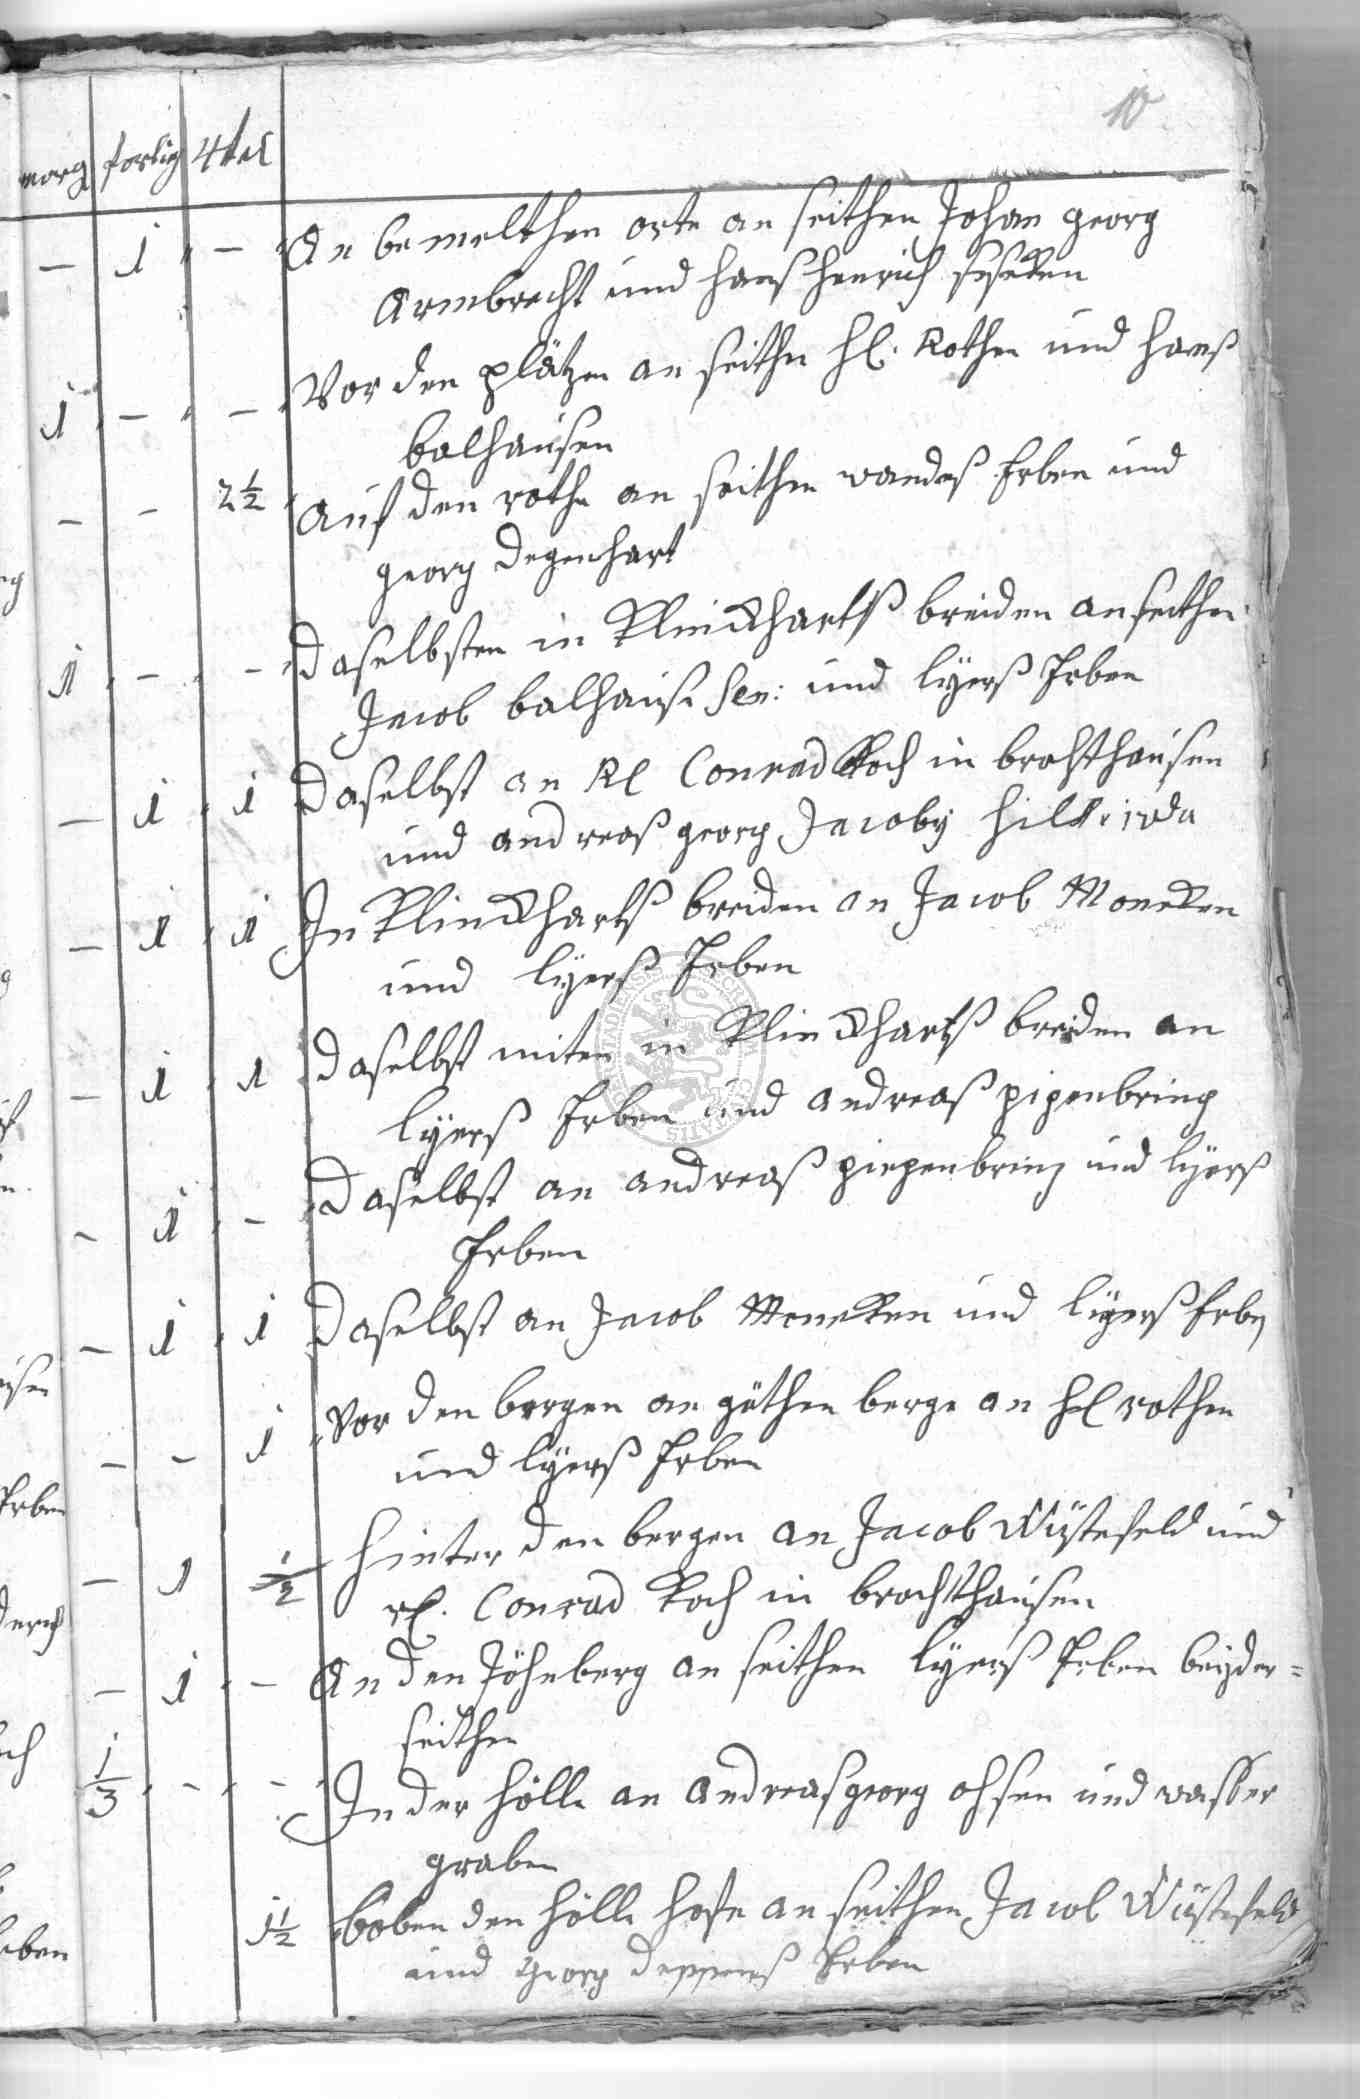 10
morg forlig 4tel
– 1 – An bemelthen orte an seithen Johan georg
Armbrecht und Hans Henrich
1 – – Vor den plätzen an seithen H. Rothen und Hanß
balhausen
– – 2½ Auf den rothe an seithen wandes Erben und
georg Degenhart
1 – – Daselbsten in Klinckhartß breiden an seithen
Jacob balhause Sen: und lÿerß Erben
– 1 1 Daselbst an Rl Conrad Koch in brochthausen
und andreaß georg Jacoby Hilkeroda
– 1 1 In Klinckhartß breiden an Jacob Moneken
und lÿerß Erben
– 1 1 Daselbst miten in Klinckhartß breiden an
lÿerß Erben und andreaß pipenbring
– 1 – Daselbst an andreaß piepenbring und lÿerß
Erben
– 1 1 Daselbst an Jacob Moneken und lÿerß Erben
– – 1 Vor den bergen an göthen berge an H rothen
und lÿerß Erben
– 1 ½ Hinter den bergen an Jacob Wüstefeld und
rl. Conrad Koch in brochthausen
– 1 – An den Johnberg an seithen lÿerß Erben beÿder=
seithen
⅓ – – In der hölle an Andreas georg ohsen und wasser
graben
1½ boben den hölle hofe an seithen Jacob Wüstefeld
und georg Deppens Erben